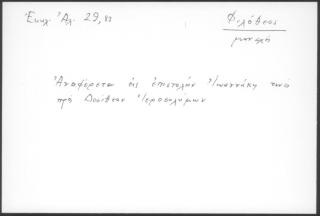 Ἐκκλ. Ἀλ. 29, 83
Φιλόθεος
μοναχός
Ἀναφέρεται εἰς ἐπιστολὴν Ἰωαννάκη τινὸς
πρὸς Δοσίθεον Ἱεροσολύμων